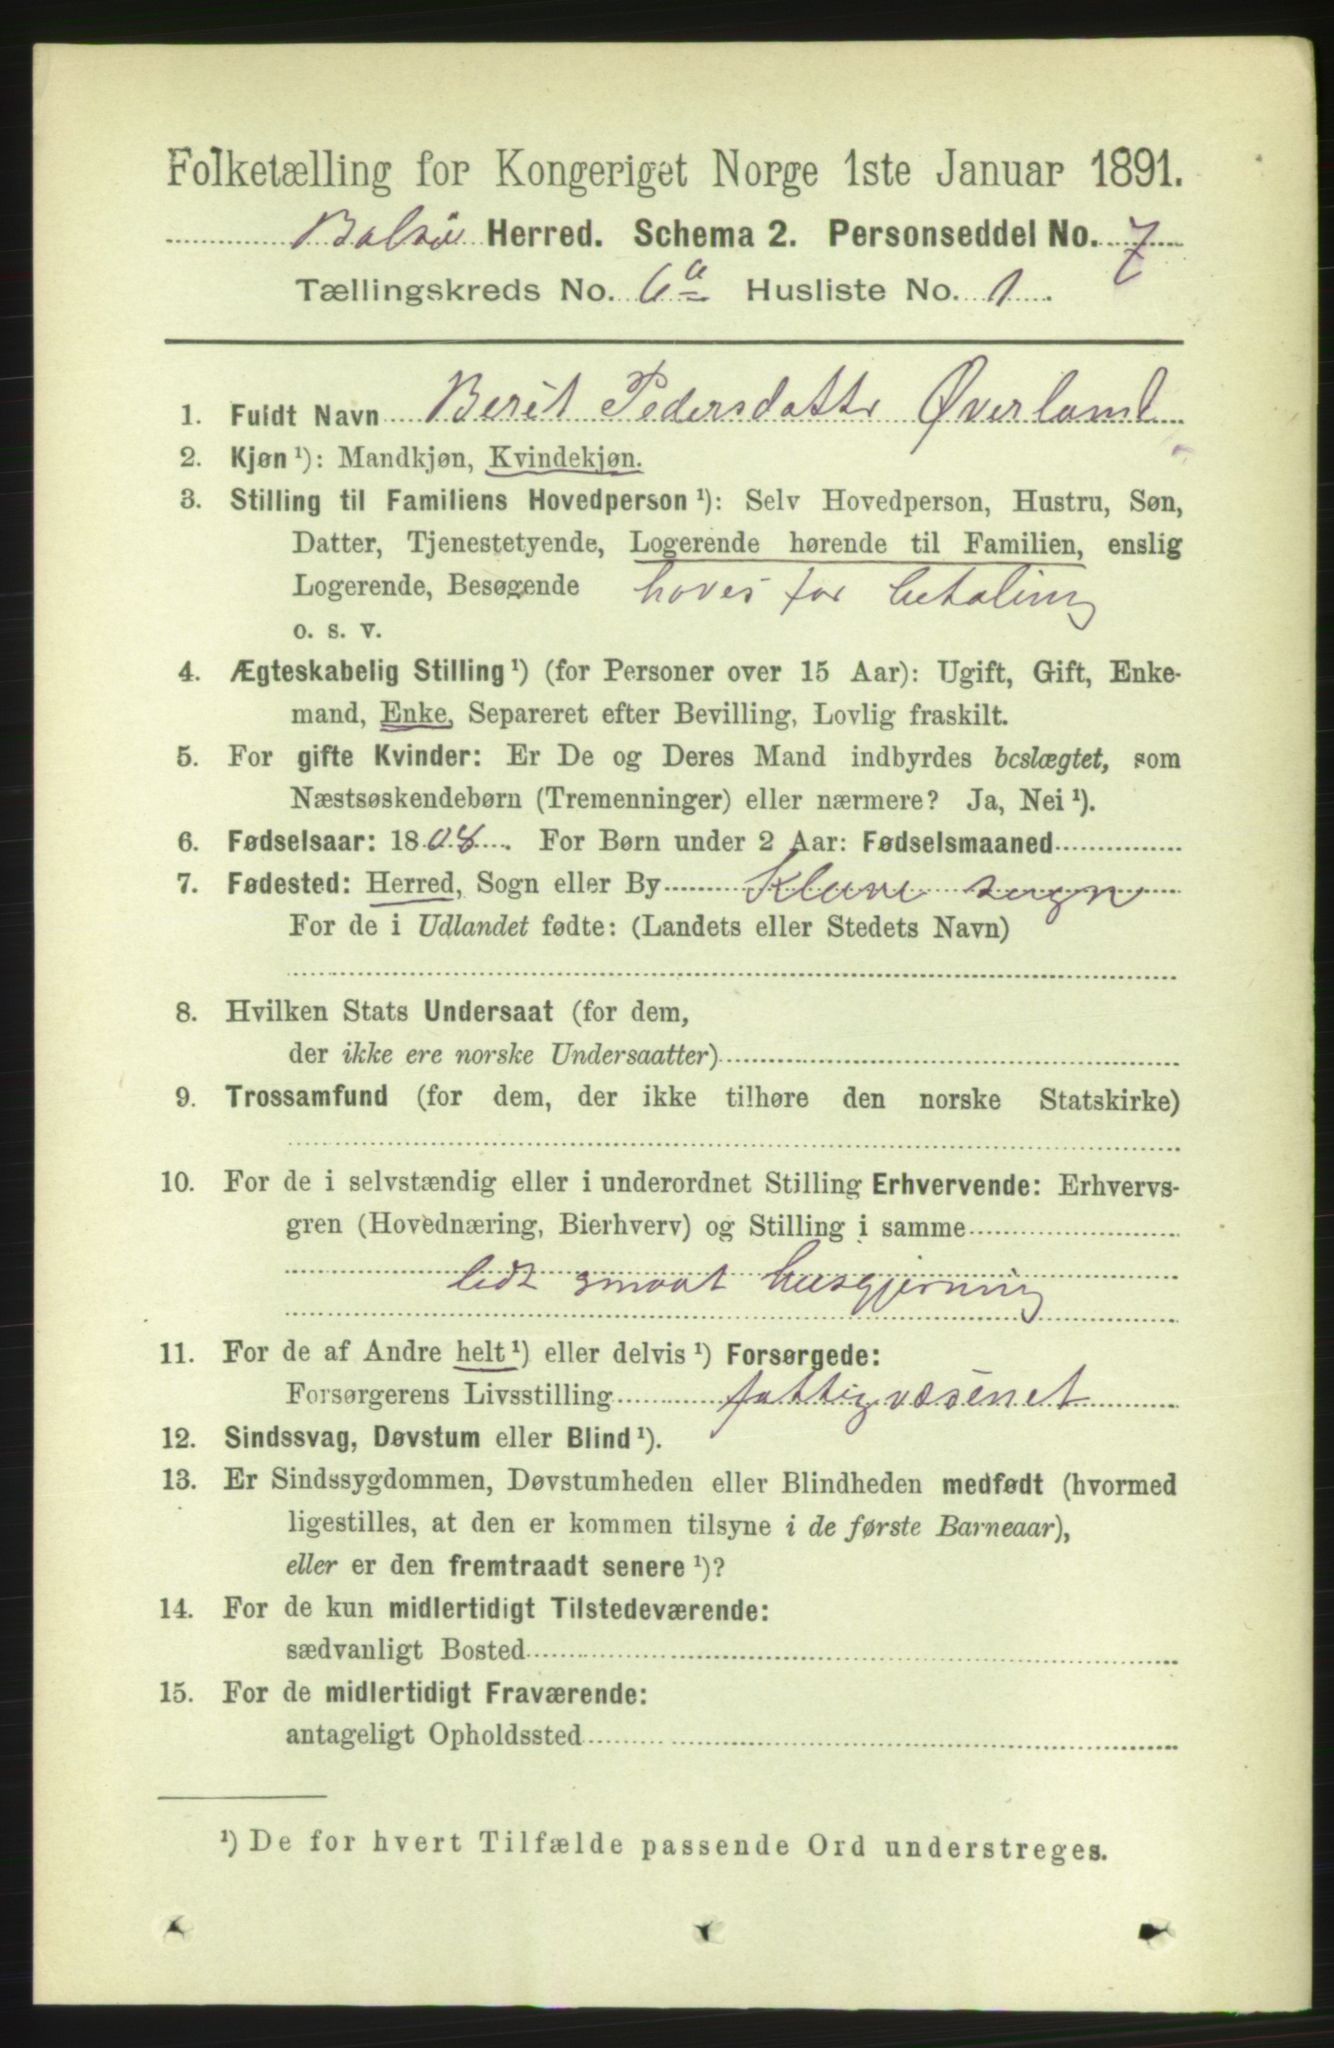 Folketælling for Kongeriget Norge 1ste Januar 1891.
Bolsø Herred. Schema 2. Personseddel No. 7
Tællingskreds No. 6a Husliste No. 1
1. Fuldt Navn Berit Pedersdatter Øverland
2. Kjøn ¹): Mandkjøn, Kvindekjøn.
3. Stilling til Familiens Hovedperson ¹): Selv Hovedperson, Hustru, Søn,
Datter, Tjenestetyende, Logerende hørende til Familien, enslig
Logerende, Besøgende haves for betaling
o. s. v.
4. Ægteskabelig Stilling ¹) (for Personer over 15 Aar): Ugift, Gift, Enke-
mand, Enke, Separeret efter Bevilling, Lovlig fraskilt.
5. For gifte Kvinder: Er De og Deres Mand indbyrdes beslægtet, som
Næstsøskendebørn (Tremenninger) eller nærmere? Ja, Nei ¹).
6. Fødselsaar: 1808. For Børn under 2 Aar: Fødselsmaaned
7. Fødested: Herred, Sogn eller By Kleve sogn
For de i Udlandet fødte: (Landets eller Stedets Navn)
8. Hvilken Stats Undersaat (for dem,
der ikke ere norske Undersaatter)
9. Trossamfund (for dem, der ikke tilhøre den norske Statskirke)
10. For de i selvstændig eller i underordnet Stilling Erhvervende: Erhvervs-
gren (Hovednæring, Bierhverv) og Stilling i samme
lidt smaat husgjerning
11. For de af Andre helt ¹) eller delvis ¹) Forsørgede:
Forsørgerens Livsstilling fattigvæsenet
12. Sindssvag, Døvstum eller Blind ¹).
13. Er Sindssygdommen, Døvstumheden eller Blindheden medfødt (hvormed
ligestilles, at den er kommen tilsyne i de første Barneaar),
eller er den fremtraadt senere ¹)?
14. For de kun midlertidigt Tilstedeværende:
sædvanligt Bosted
15. For de midlertidigt Fraværende:
antageligt Opholdssted
¹) De for hvert Tilfælde passende Ord understreges.